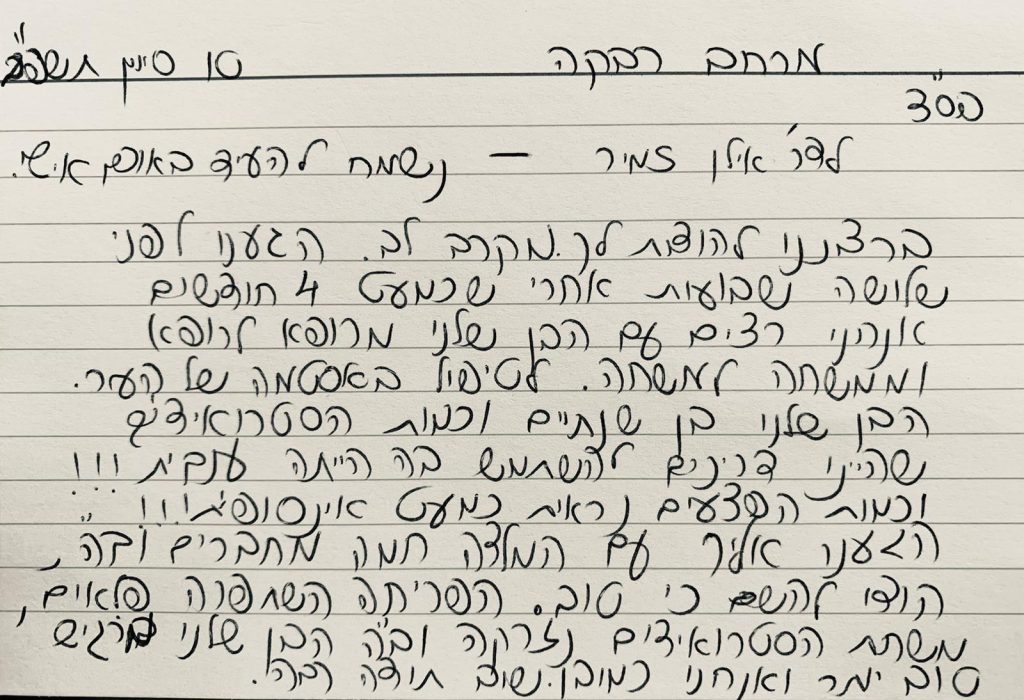 מרחב רבקה טו סיון תשפ"ב
בס"ד
לדר' אילן זמיר – נשמח להעיד באופן אישי.
ברצוננו להודות לך מקרב לב. הגענו לפני
שלושה שבועות אחרי שכמעט 4 חודשים
אנחנו רצים עם הבן שלנו מרופא לרופא
וממשחה למשחה. לטיפול באסטמה של העור.
הבן שלנו בן שנתיים וכמות הסטרואידים
שהיינו צריכים להשתמש בה הייתה ענקית!!!
וכמות הפצעים נראית כמעט אינסופית!!!
הגענו אליך עם המלצה חמה מחברים וב"ה,
הודו להשם כי טוב. הפריחה השתפרה פלאים,
משחת הסטרואידים נזרקה וב"ה הבן שלנו מרגיש
טוב יותר ואנחנו כמובן. שוב תודה רבה.